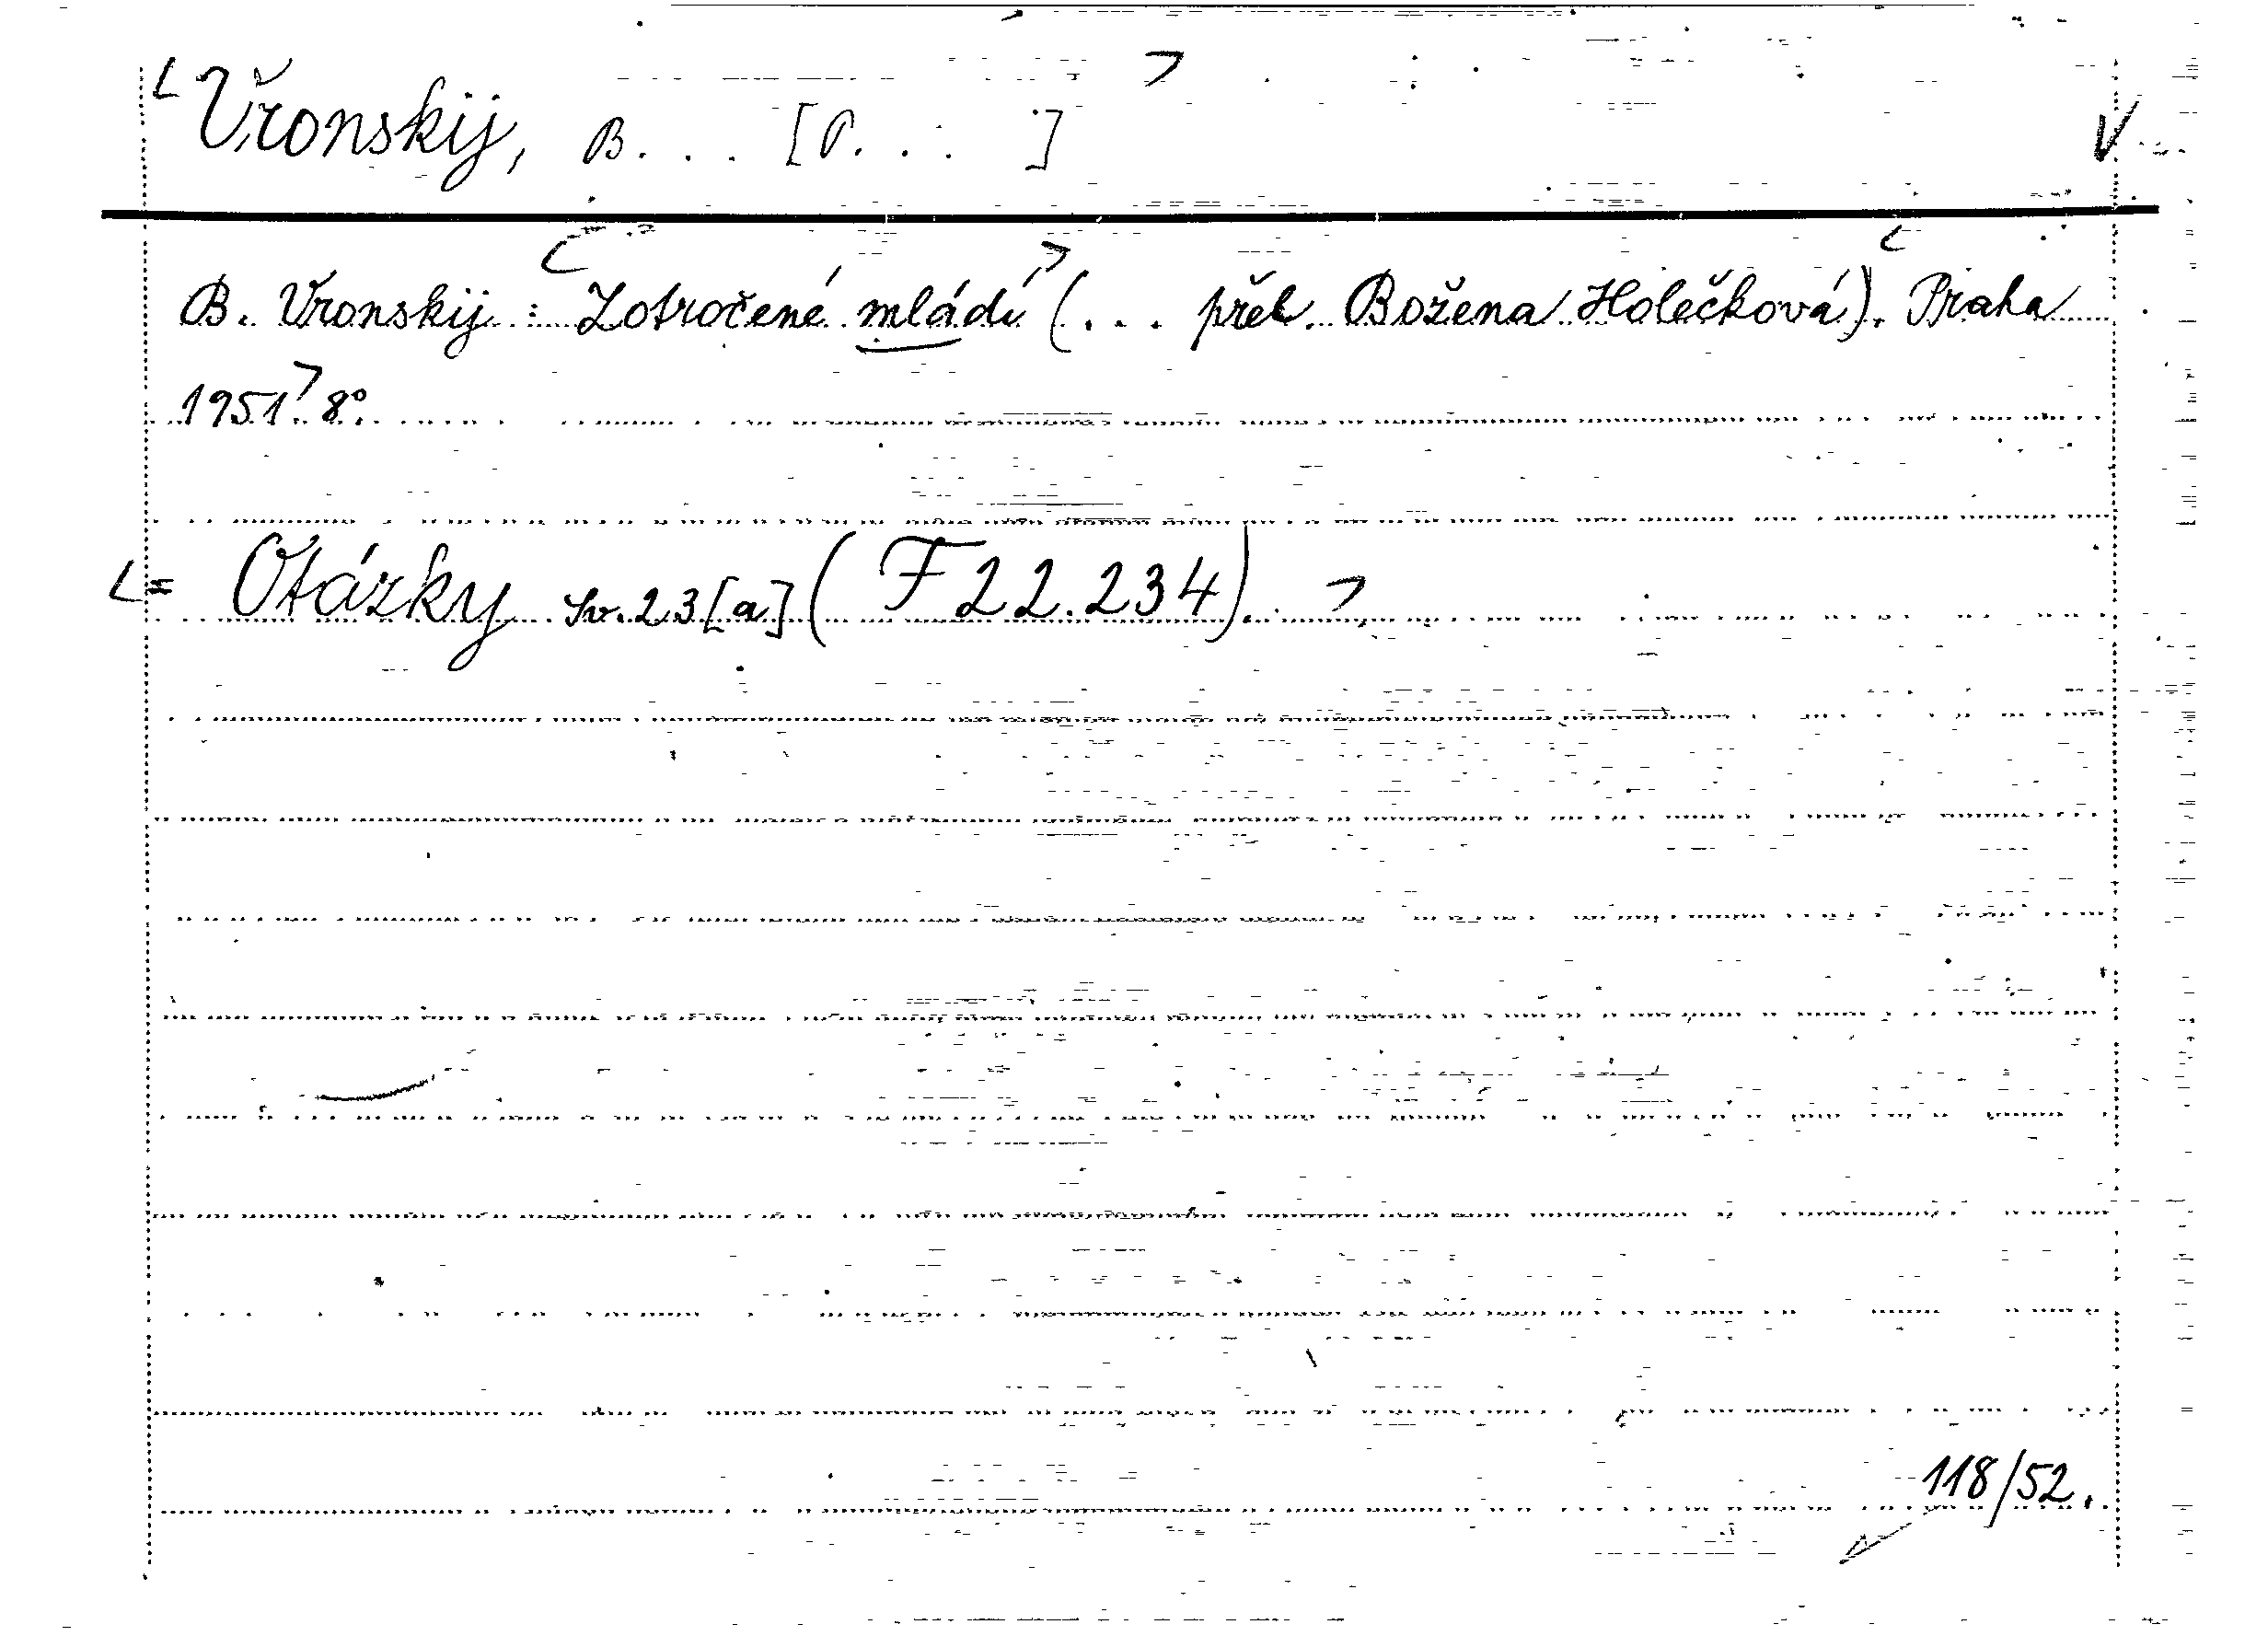 Vronskij, B... [P... ]
B. Vronskij: Zotročené mládí (... přel. Božena Holečková). Praha
1951. 8°.
= Otázky sv. 23[a] (F 22.234).
118/52.